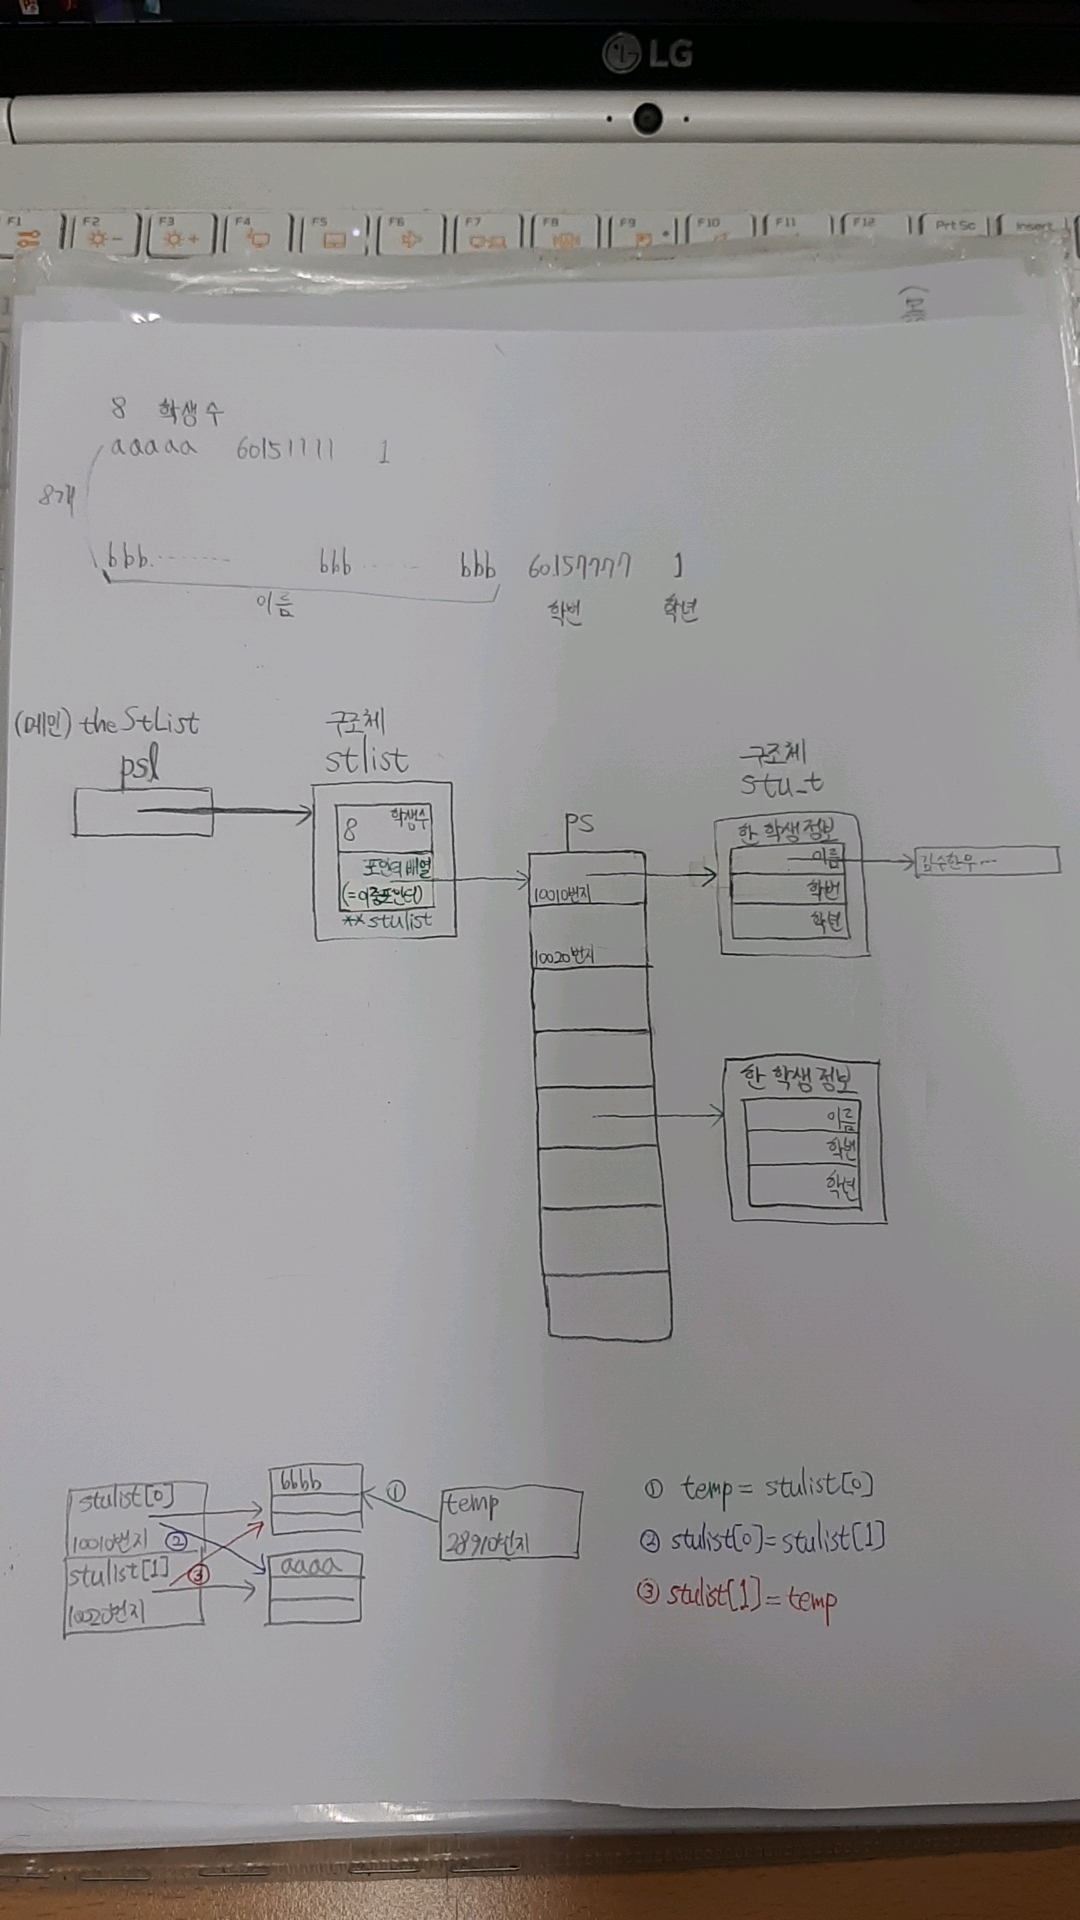 LG
F1 F2 F3 F4 F5 F6 F7 F8 F9 F10 F11 F12 PrtSc Insert
8 학생수
aaaaa 60151111 1
8개
bbb......... bbb...... bbb 60157777 1
이름 학번 학년
(메인) the StList
psl
구조체
stlist
8 학생수
포인터 배열
(=이중포인터)
**stulist
PS
10010번지
10020번지
구조체
stu_t
한 학생 정보
이름
학번
학년
김수한무...
한 학생 정보
이름
학번
학년
stulist[0]
10010번지
stulist[1]
10020번지
② ③
bbbb
aaaa
①
temp
28910번지
① temp = stulist[0]
② stulist[0]=stulist[1]
③ stulist[1]=temp